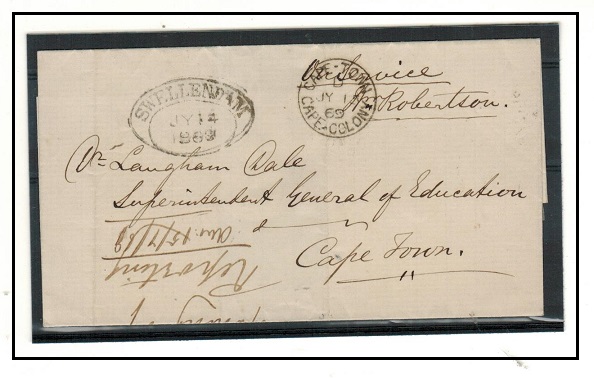 On Service
Wm Robertson.
SWELLENDAM
JY 14
1869
CAPE-TOWN
JY 1
69
CAPE-COLONY
Dr Langham Dale
Superintendent General of Education
Cape Town.
Ans. 15/7/69
Reporting